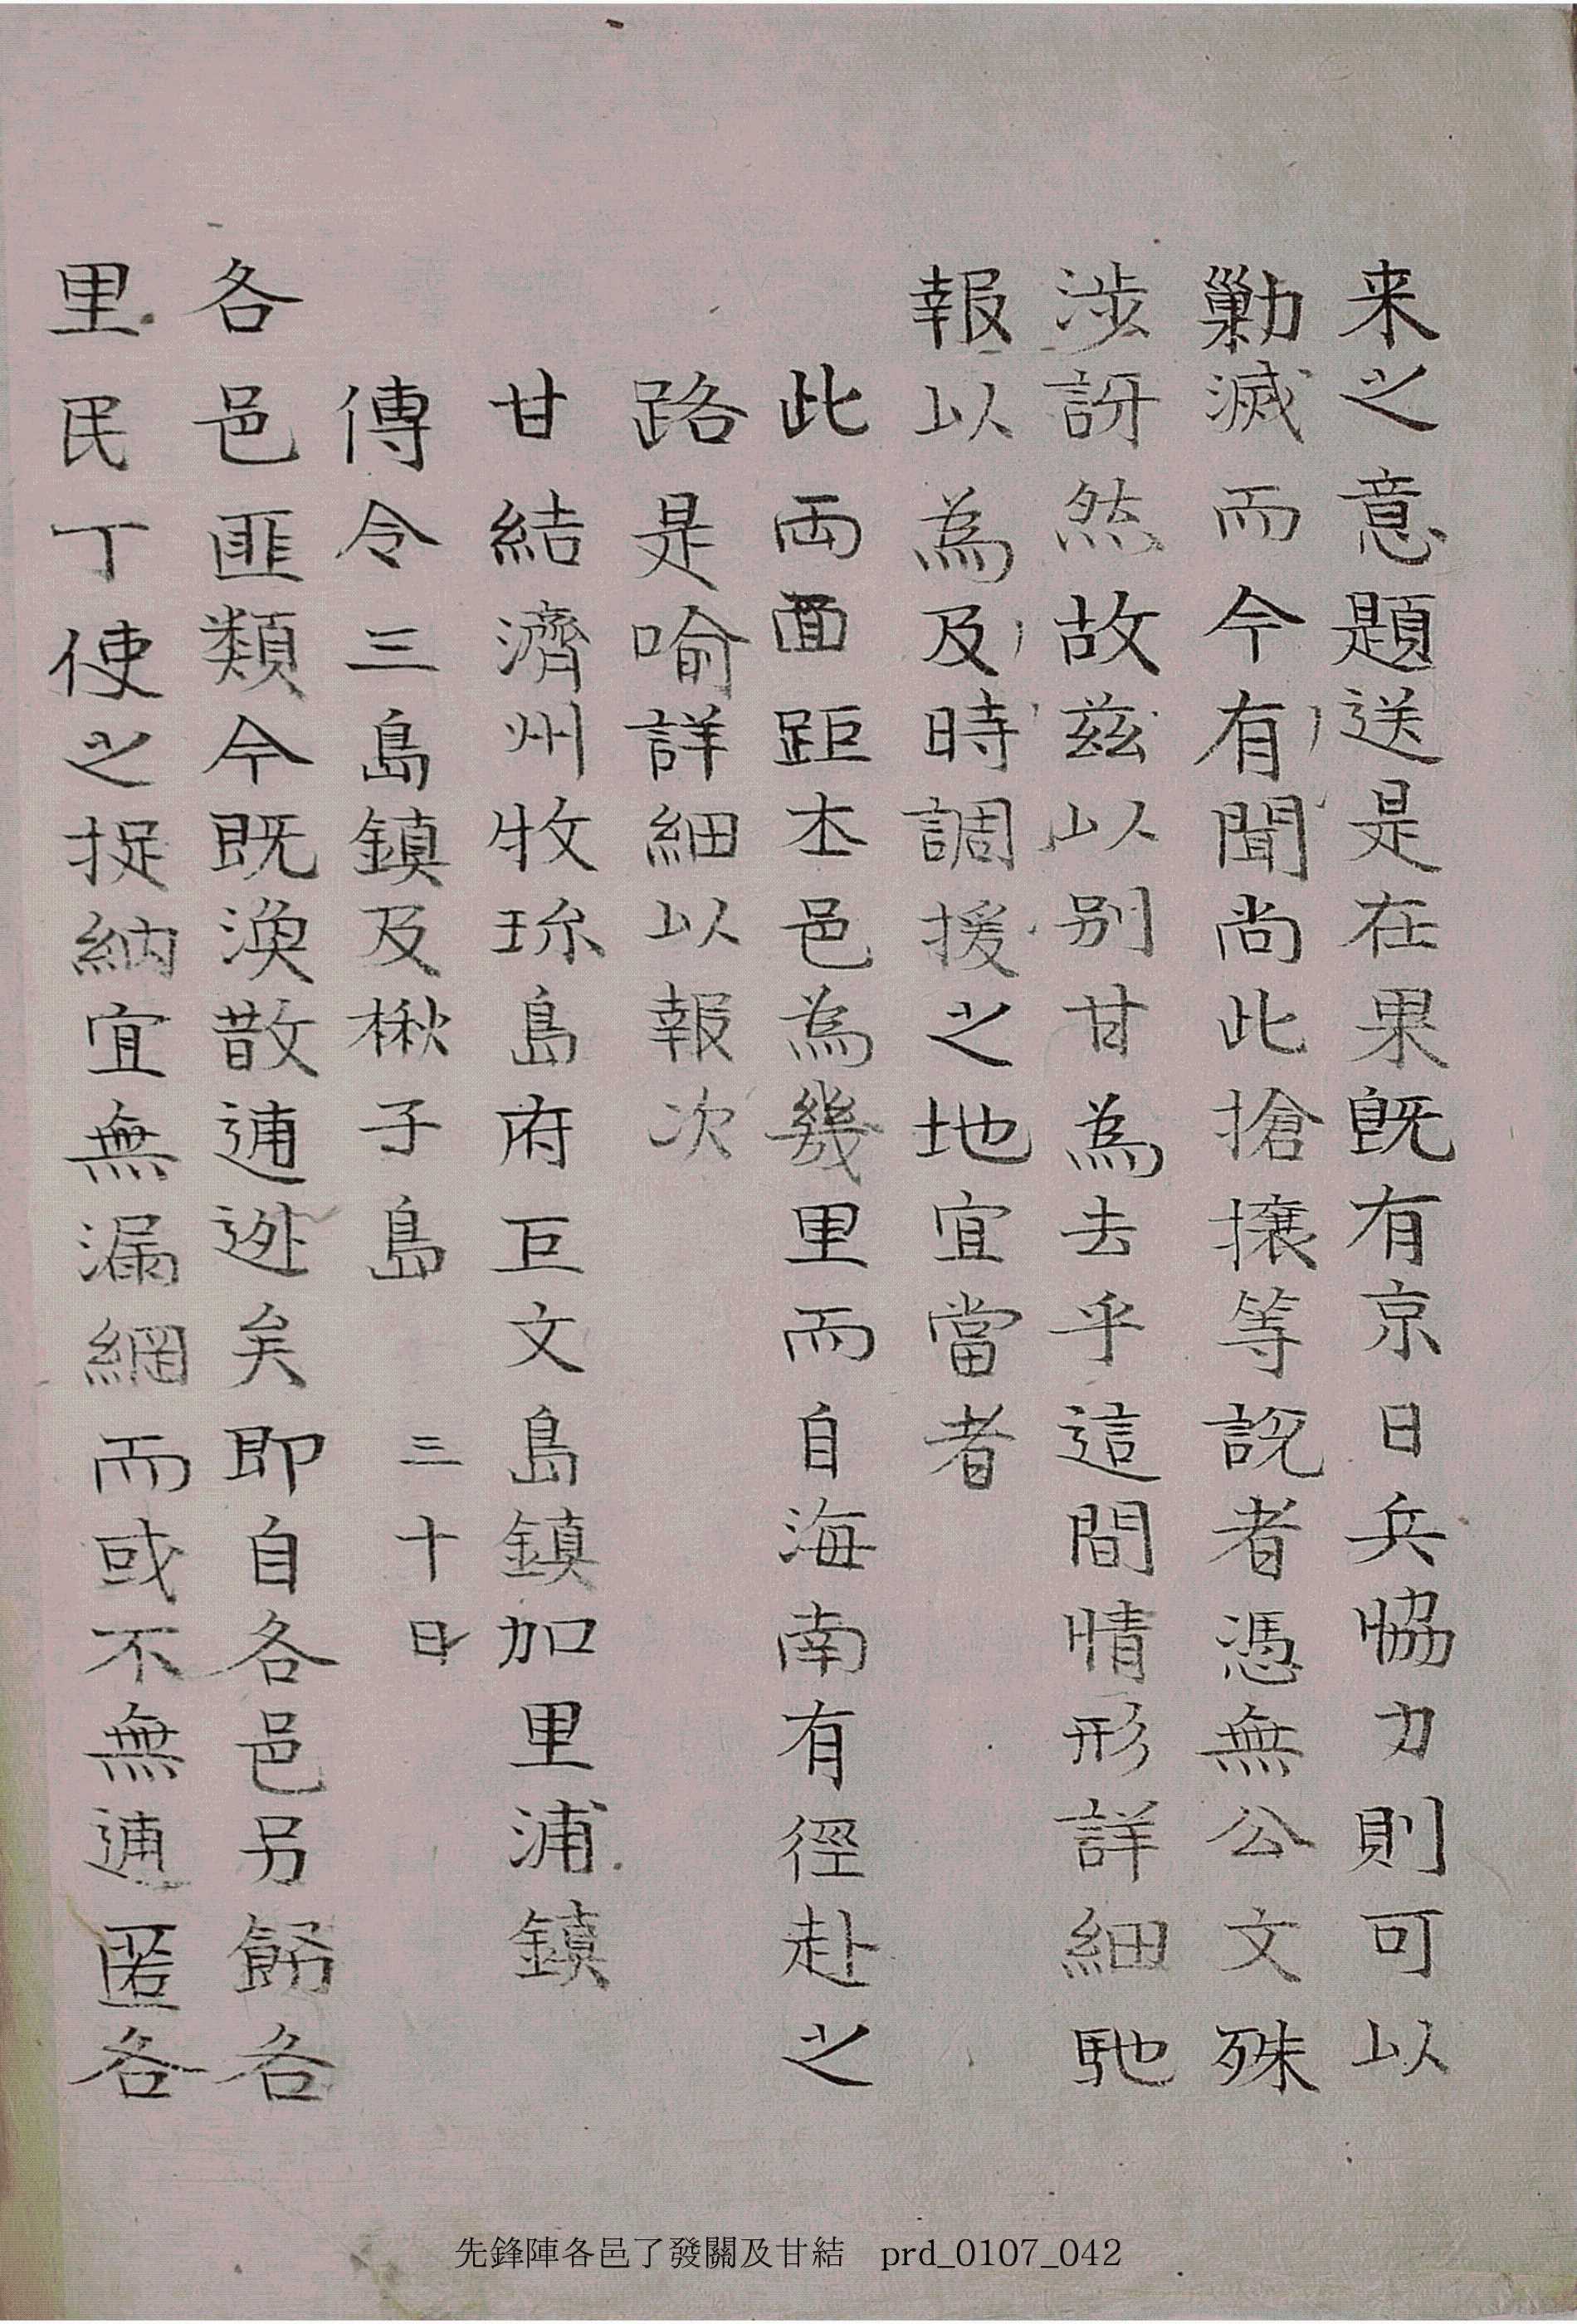 来之意題送是在果既有京日兵恊力則可以
勦滅而今有聞尚此搶攘等説者憑無公文殊
涉訝然故玆以别甘為去乎這間情形詳細馳
報以為及時調援之地宜當者
此両面距夲邑為幾里而自海南有徑赴之
路是喻詳細以報次
甘結濟州牧珎島府巨文島鎮加里浦鎮
傳令三島鎮及楸子島 三十日
各邑匪類今既渙散逋迯矣即自各邑另飭各
里民丁使之捉納宜無漏網而或不無逋匿各
先鋒陣各邑了發關及甘結 prd_0107_042